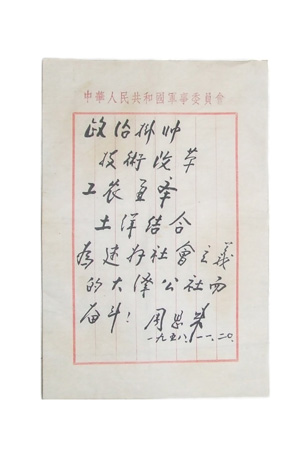 中華人民共和國軍事委員會
政治掛帅
技術改革
工农並举
土洋結合
為建好社會主義
的大澤公社而
奋斗！周恩来
一九五八.一一.二〇.